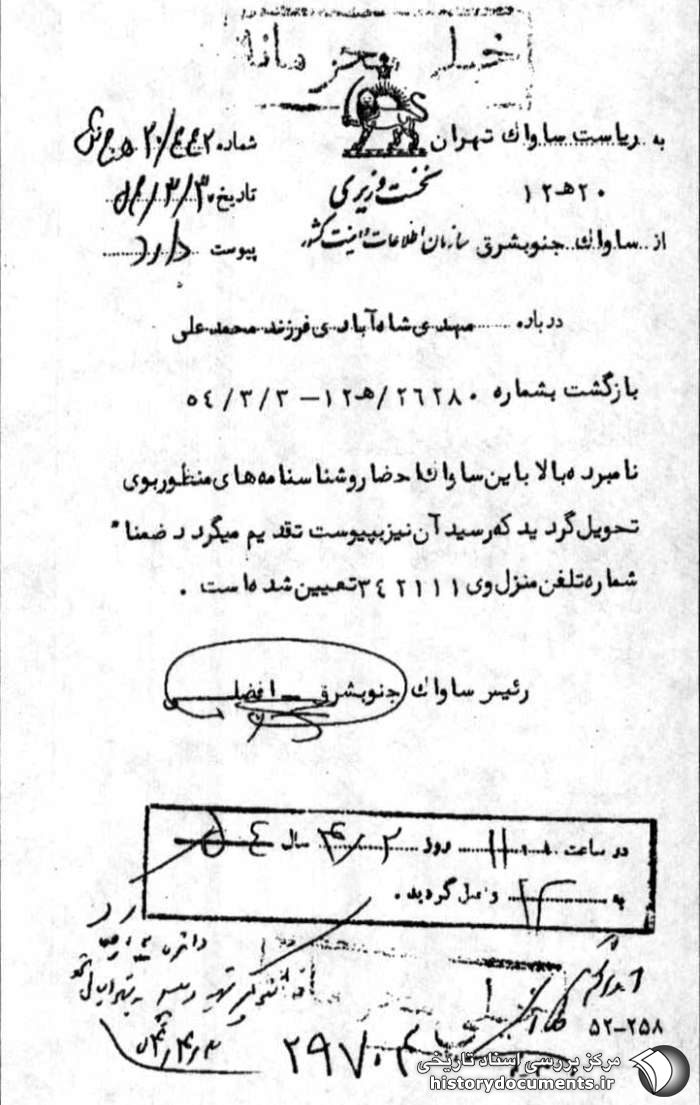 خیلی محرمانه
به ریاست ساواک تهران
۲۰هـ۱۲
از ساواک جنوبشرق
نخست وزیری
سازمان اطلاعات و امنیت کشور
شماره
تاریخ
پیوست دارد
درباره مهدی شاه‌آبادی فرزند محمدعلی
بازگشت بشماره ۲۶۲۸۰/هـ۱۲ – ۵۴/۳/۳
نامبرده بالا باین ساواک احضار و شناسنامه های منظور بوی
تحویل گردید که رسید آن نیز بپیوست تقدیم میگردد ضمنا"
شماره تلفن منزل وی ۳۴۲۱۱۱ تعیین شده است .
رئیس ساواک جنوبشرق – افضلی
در ساعت روز ۴/۲ سال ۵۴
به ۱۲ واصل گردید .
۵۲-۲۵۸
۲۹۷۰
مرکز بررسی اسناد تاریخی
historydocuments.ir